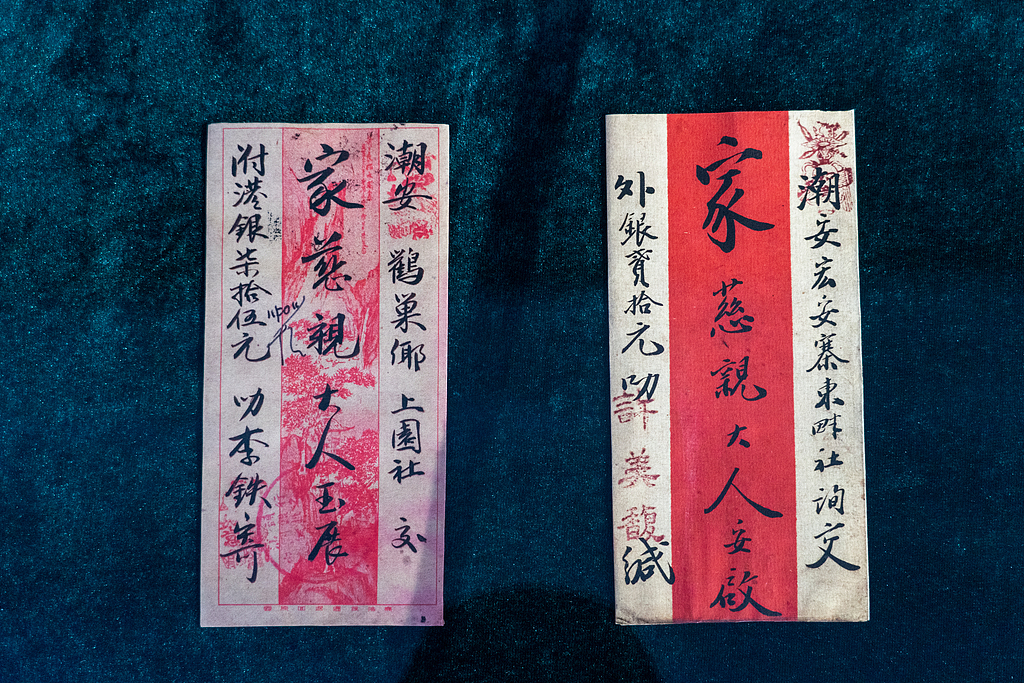 潮安 鸛巢鄉 上園社 交
家慈親大人玉展
附港銀柒拾伍元 叻李鉄寄
潮安宏安寨東畔社詢交
家慈親大人安啟
外銀貳拾元 叻許美馥緘